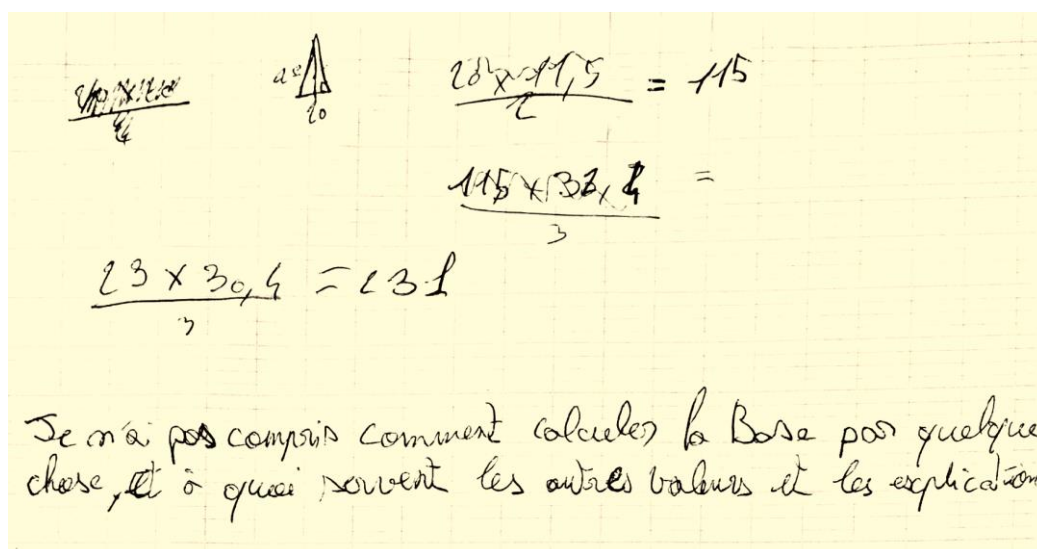 20
20 x 11,5 / 2 = 115
115 x 33, / 3 =
23 x 30,4 / 3 = 231
Je n'ai pas compris comment calculer la Base par quelque
chose, et à quoi servent les autres valeurs et les explication